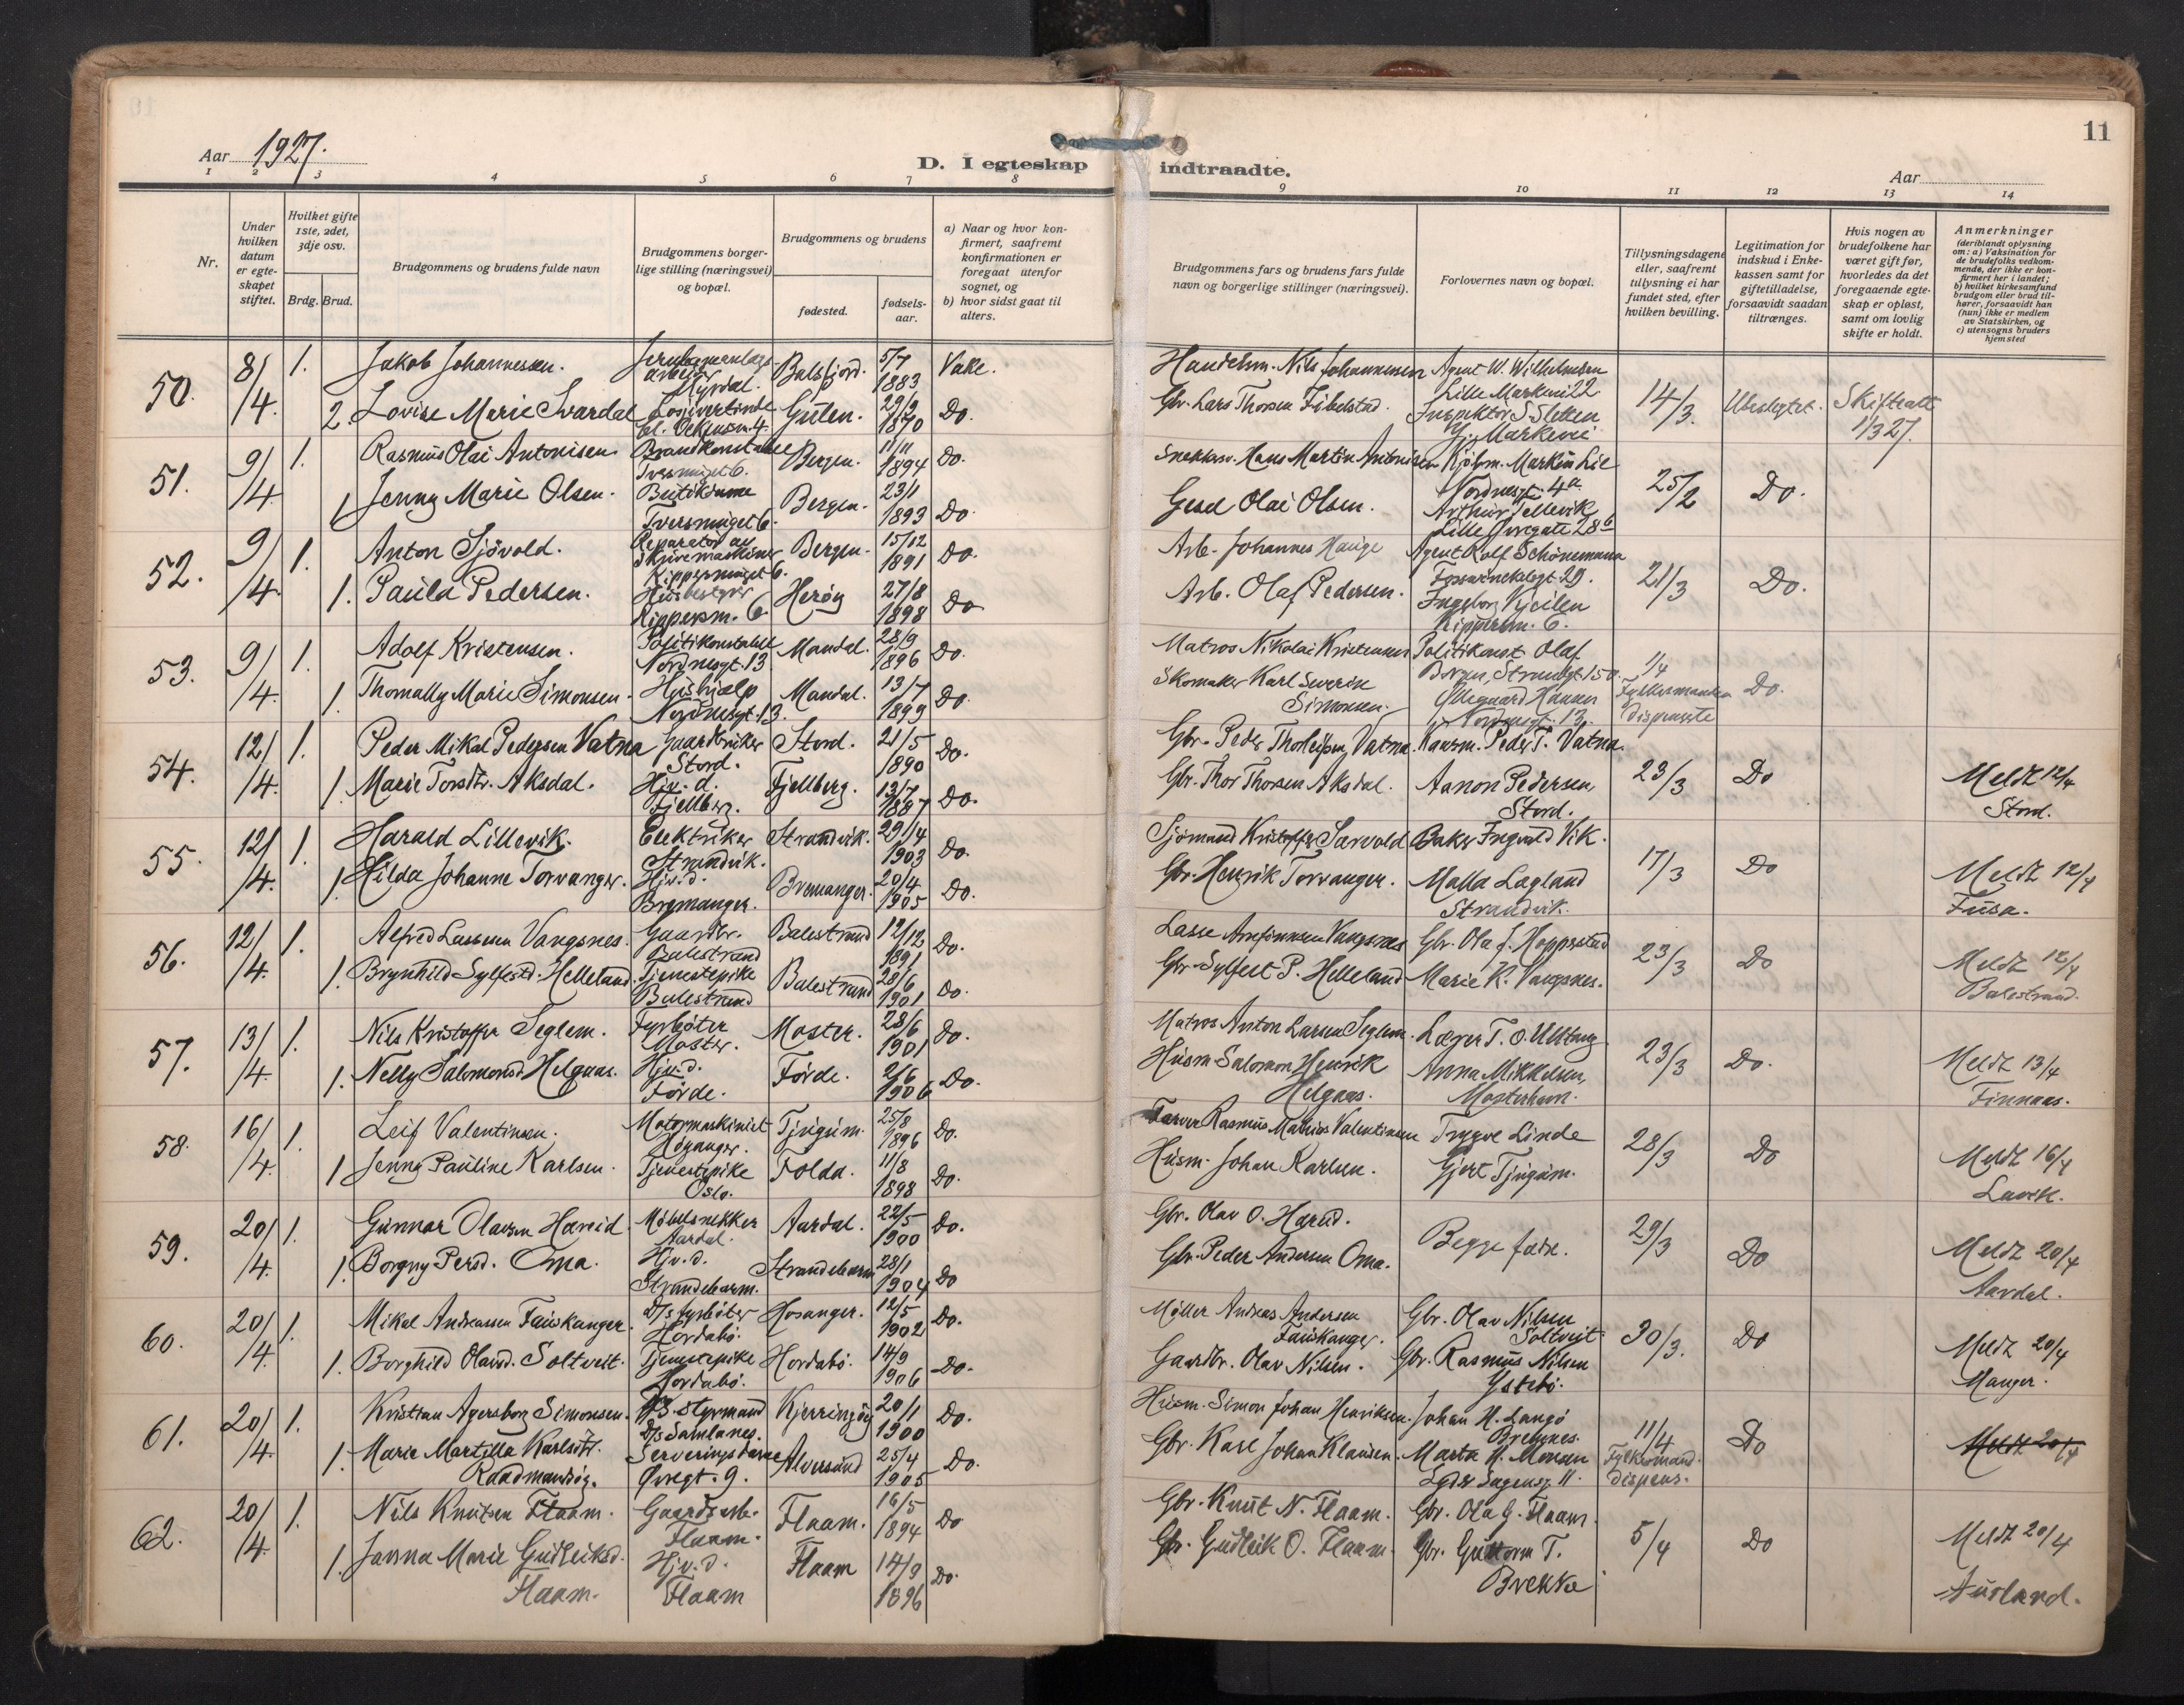 11
Aar 1927.
D. I egteskap indtraadte.
Aar
1 2 3 4 5 6 7 8 9 10 11 12 13 14
Nr.
Under hvilken datum er egteskapet stiftet.
Hvilket gifte 1ste, 2det, 3dje osv.
Brdg. Brud.
Brudgommens og brudens fulde navn
Brudgommens borgerlige stilling (næringsvei) og bopæl.
Brudgommens og brudens
fødested.
fødselsaar.
a) Naar og hvor konfirmert, saafremt konfirmationen er foregaat utenfor sognet, og
b) hvor sidst gaat til alters.
Brudgommens fars og brudens fars fulde navn og borgerlige stillinger (næringsvei).
Forlovernes navn og bopæl.
Tillysningsdagene eller, saafremt tillysning ei har fundet sted, efter hvilken bevilling.
Legitimation for indskud i Enkekassen samt for giftetilladelse, forsaavidt saadan tiltrænges.
Hvis nogen av brudefolkene har været gift før, hvorledes da det foregaaende egteskap er opløst, samt om lovlig skifte er holdt.
Anmerkninger
(deriblandt oplysning om: a) Vaksination for de brudefolks vedkommende, der ikke er konfirmert her i landet; b) hvilket kirkesamfund brudgom eller brud tilhører, forsaavidt han (hun) ikke er medlem av Statskirken, og c) utensogns bruders hjemsted
50. 8/4. 1. Jakob Johannesen. arbeider Myrdal. Balsfjord. 5/7 1883 Vake. Handelsm. Nils Johannesen Agent W. Wilhelmsen Lille Markevei 22 14/3. Ubeslegtet. Skifteatt 1/3 27.
2. Lovise Marie Svardal Gulen. 29/9 1870 Do. Gbr. Lars Thorsen Inspektør S Sletten Markevei
51. 9/4. 1. Rasmus Olai Antonisen Brandkonstabel Tversmuget 6. Bergen. 11/11 1894 Do. Hans Martin Antonisen Nordnesgt. 4a 25/2 Do.
1 Jenny Marie Olsen. Tversmuget 6. Bergen. 23/1 1893 Do. Olai Olsen. Arthur Tellevik Lille Øvregate 28b
52. 9/4. 1. Anton Sjövold. Reparatør av skrivemaskiner Kippersmuget 6. Bergen. 15/12 1891 Do. Arb. Johannes Hauge Agent Rolf Schönemann 21/3 Do.
1. Paula Pedersen. Husbestyrer Kippersm. 6 Heröy 27/8 1898 Do Arb. Olaf Pedersen. Ingeborg Kippersm. 6.
53. 9/4. 1. Adolf Kristensen. Politikonstabel Nordnesgt. 13 Mandal. 28/9 1896 Do. Matros Nikolai Kristensen Politikonst Olaf Strandgt. 150. 1/4 Fylkesmanden dispenserte Do.
1. Thomally Marie Simonsen. Hushjælp Nordnesgt. 13. Mandal. 13/7 1899 Do. Skomaker Karl Severin Simonsen. Nordnesgt. 13.
54. 12/4. 1. Peder Mikal Pedersen Vatna Gaardbruker Stord. Stord. 21/5 1890 Do. Gbr. Peder Vatna. Kaarm. Peder T. Vatna. 23/3 Do Meldt 12/4 Stord.
1. Marie Torsdtr. Aksdal. Hjv. d. Fjellberg. Fjellberg. 13/7 1887 Do. Gbr. Thor Thorsen Aksdal. Aanon Pedersen Stord.
55. 12/4. 1. Harald Lillevik. Elektriker Strandvik. Strandvik. 29/4 1903 Do. Sjömand Kristoffer Sarvold Baker Ingvald Vik. 17/3 Do Meldt 12/4 Fusa.
1. Hilda Johanne Torvanger. Hjv.d. Bremanger. Bremanger. 20/4 1905 Do. Gbr. Henrik Torvanger. Malla Lagland Strandvik.
56. 12/4. 1. Alfred Lassesen Vangsnes. Gaardbr. Balestrand Balestrand 12/12 1891 Do. Lasse Vangsnes Gbr. Ola J. Hopperstad 23/3 Do Meldt 12/4 Balestrand.
1. Brynhild Sylfestd. Helleland. Tjenestepike Balestrand Balestrand 28/6 1901 Do. Gbr. Sylfest P. Helleland Marie K. Vangsnes.
57. 13/4. 1. Nils Kristoffer Seglem. Fyrböter Moster. Moster. 28/6 1901 Do. Matros Anton Larsen Seglem. Lærer T. O. 23/3 Do. Meldt 13/4 Finnaas.
1. Nelly Salomonsd. Helgaas. Hjv.d. Förde. Förde. 2/6 1906 Do. Husm. Salomon Henrik Helgaas. Anna Mikkelsen, Mosterhavn.
58. 16/4. 1. Leif Valentinsen. Motormaskinist Höyanger. Tjugum. 25/8 1896 Do. Farver Rasmus Mathias Valentinsen Trygve Linde 28/3 Do Meldt 16/4 Lavik.
1 Jenny Pauline Karlsen. Tjenestepike Oslo. Folda. 11/8 1898 Do. Husm. Johan Karlsen. Gjert Tjugum.
59. 20/4. 1. Gunnar Olavsen Hæreid Möbelsnekker Aardal. Aardal. 22/5 1900 Do. Gbr. Olav O. Hæreid. Begge fædre. 29/3 Do Meldt 20/4 Aardal.
1. Borgny Persd. Oma. Hjv.d. Strandebarm. Strandebarm 28/1 1904 Do Gbr. Peder Andersen Oma.
60. 20/4. 1. Mikal Andreassen Fauskanger. D/s fyrböter Hordabö. Hosanger. 12/5 1902 Do. Möller Andreas Andersen Fauskanger. Gbr. Olav Nilsen Soltveit 30/3. Do Meldt 20/4 Manger.
1. Borghild Olavsd. Soltveit. Tjenestepike Hordabö. Hordabö. 14/9 1906 Do. Gaardbr. Olav Nilsen. Gbr. Rasmus Nilsen Ystebö.
61. 20/4. 1. Kristian Agersborg Simonsen. styrmand D/s Samlanes. Kjerringöy 20/1 1900 Do. Husm. Simon Johan Henriksen. Johan H. Langö 11/4 Fylkesmand. dispens. Do Meldt 20/4
1. Marie Martilla Karlsdtr. Raadmandsöy. Serveringsdame Øvregt. 9. Alversund 25/4 1905 Do. Gbr. Karl Johan Klausen. Marta M. Monsen
62. 20/4. 1. Nils Knutsen Flaam. Gaardsarb. Flaam. Flaam. 16/5 1894 Do Gbr. Knut N. Flaam. Gbr. Ola G. Flaam. 5/4 Do Meldt 20/4 Aurland.
1. Janna Marie Gudleiksd. Flaam. Hjv.d. Flaam Flaam 14/9 1896 Do. Gbr. Gudleik O. Flaam. Gbr. Guttorm T. Brekke